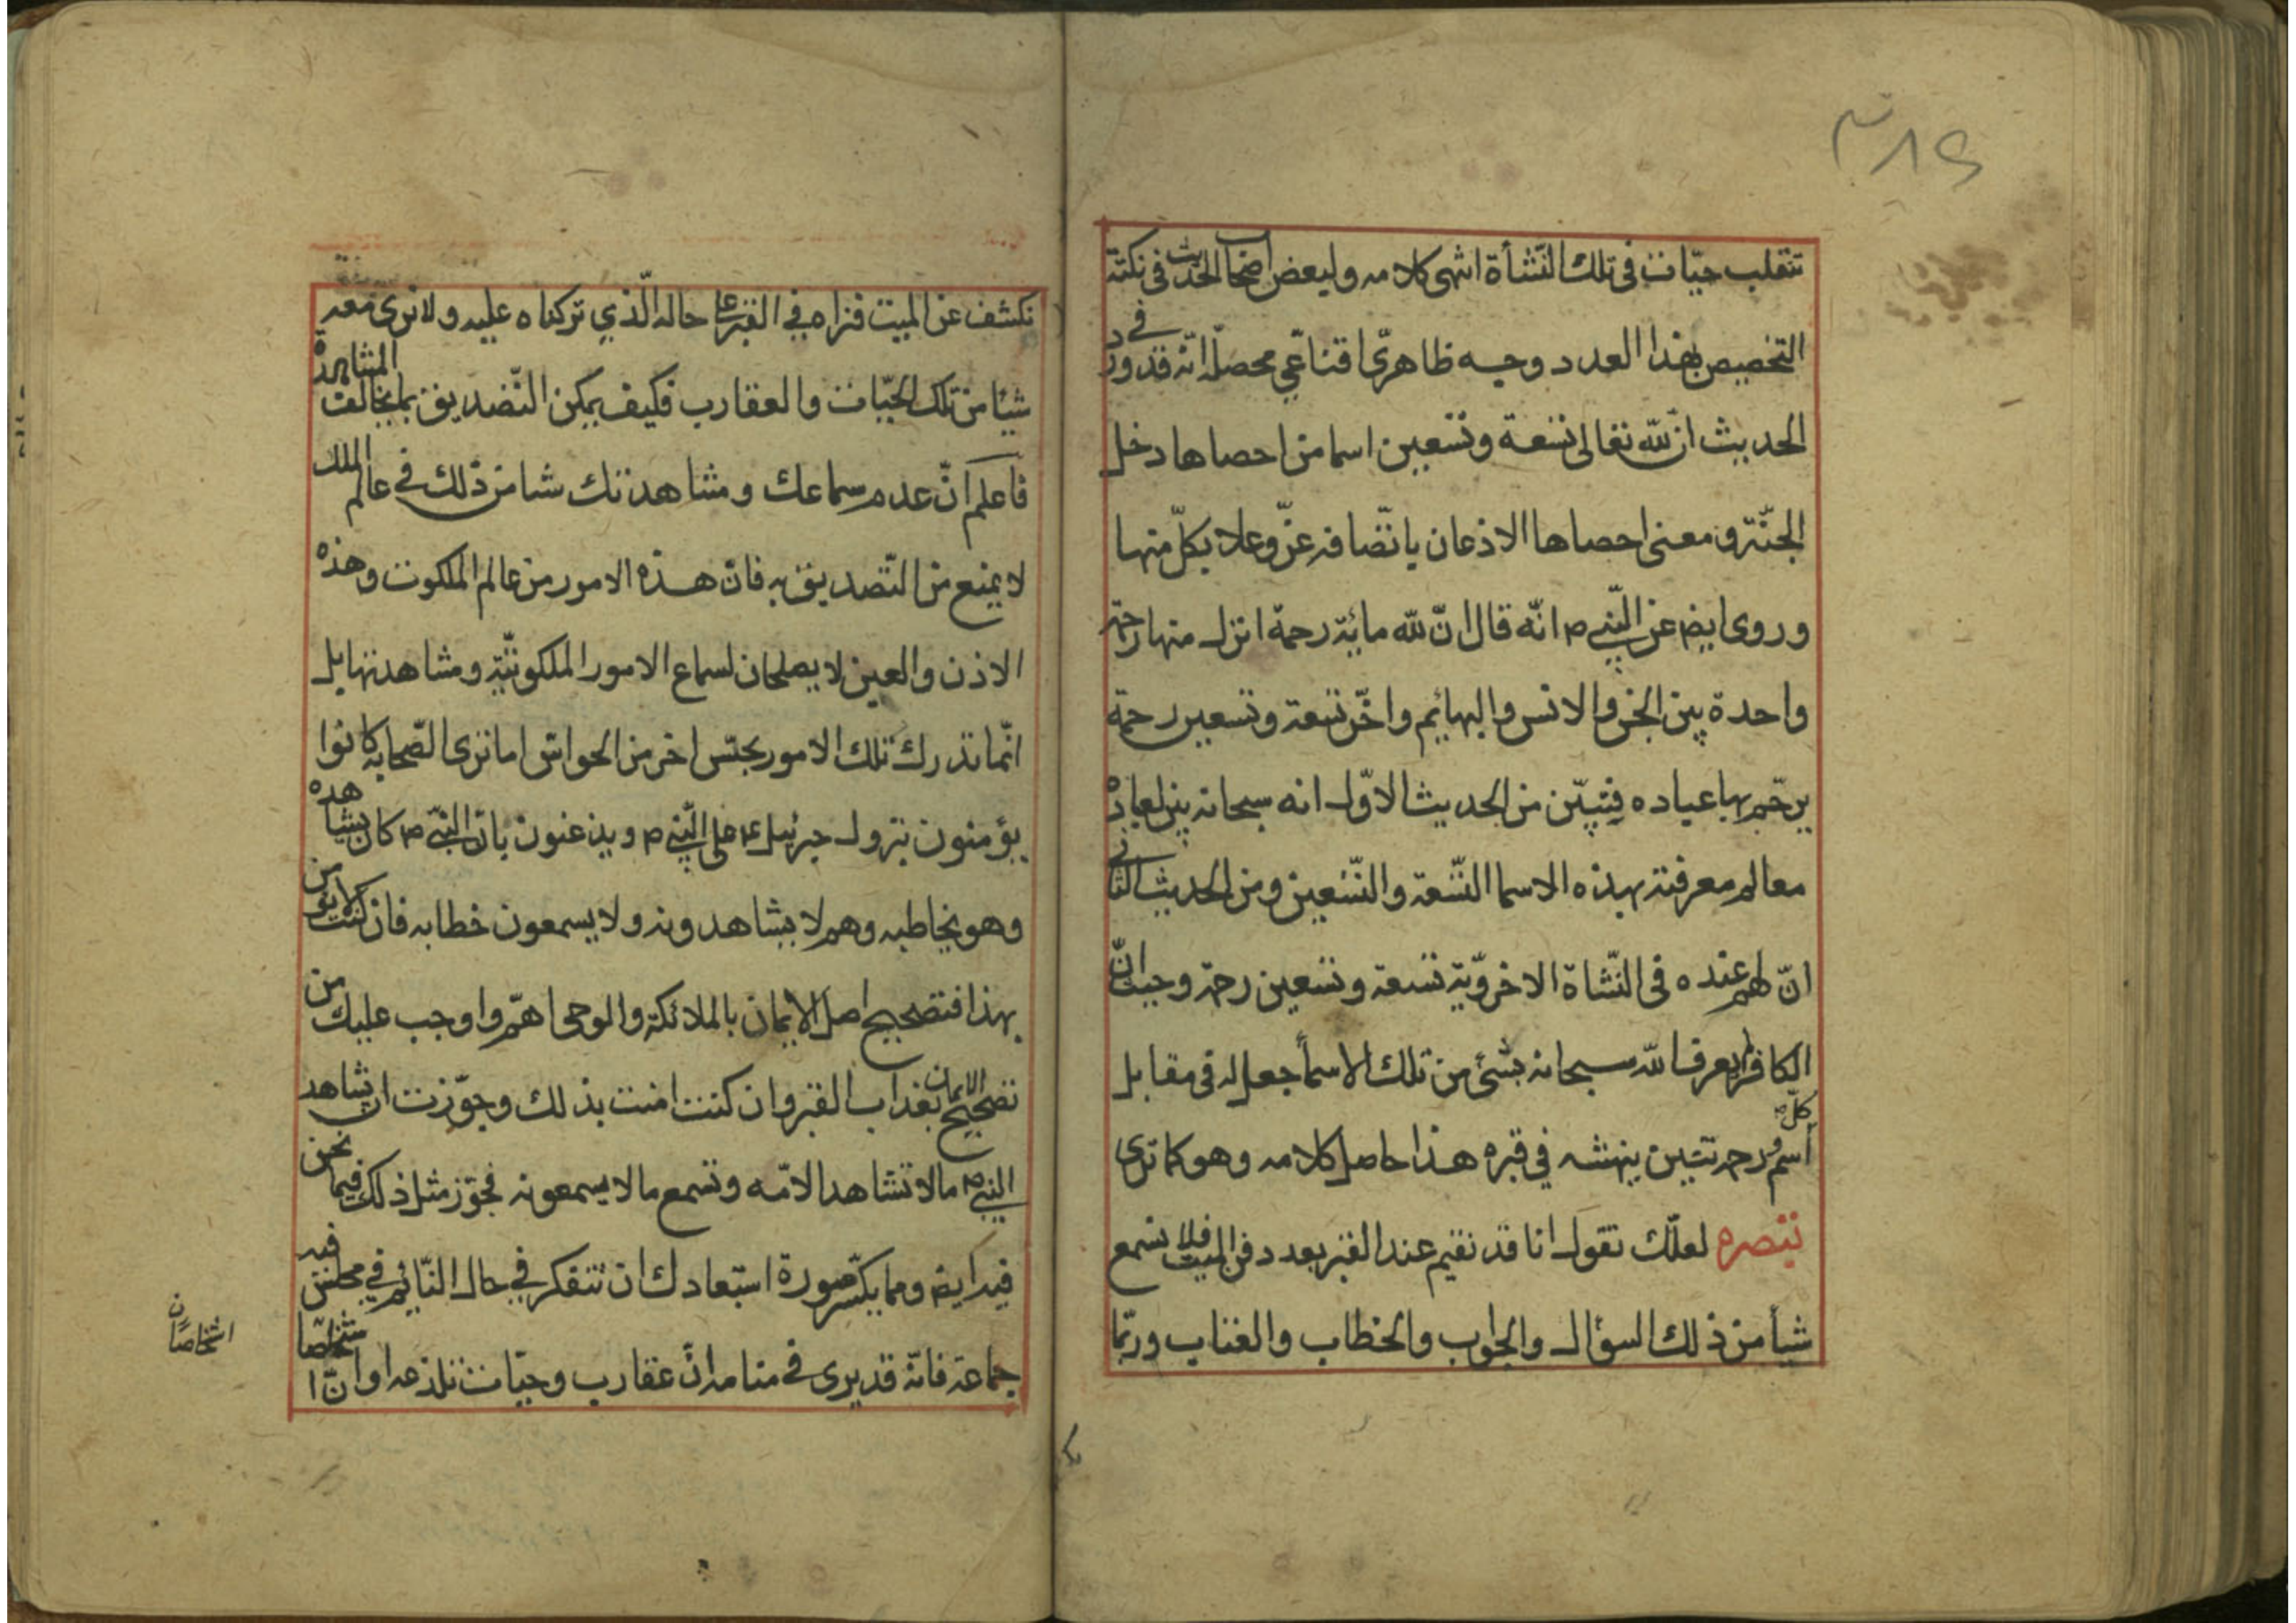 تنقلب حيّات فى تلك النّشأة انتهى كلامه ولبعض اصحاب الحديث فى نكتة
التخصيص بهذا العدد وجيه ظاهرىّ اقناعّي محصلّه انّه قد ورد في
الحديث ان لله تعالى تسعة وتسعين اسما من احصاها دخل
الجنّة ومعنى احصاها الاذعان باتّصافه عزّ وعلا بكلّ منها
وروى ايض عن النّبي ص انّه قال انّ لله مائة رحمة انزل منها رحمة
واحدة بين الجن والانس والبهائيم واخّر تسعة وتسعين رحمة
يرحّم بها عباده فتبيّن من الحديث الاوّل انه سبحانه بين لعباده
معالم معرفته بهذه الاسما التّسعة والتّسعين ومن الحديث الثانى
انّ لهم عنده فى النّشاة الاخروّية تسعة وتسعين رحمة وحيث انّ
الكافر لم يعرف الله سبحانه بشئ من تلك الاسمأ جعل له فى مقابل
كلّ
اسم ورحمة تنين ينهشه في قبره هذا حاصل كلامه وهو كما ترى
تبصره لعلّك تقول انا قد نقيم عند القبر بعد دفن الميت فلا نسمع
شيأ من ذلك السؤال والجواب والخطاب والعتاب وربّما
نكشف عن الميت فنراه في القبر على حاله الّذي تركناه عليه ولا نرى معه
شيئا من تلك الحيّات والعقارب فكيف يمكن التّصديق بما يخالف المشاهدة
فاعلم انّ عدم سماعك ومشاهدتك شيا من ذلك في عالم الملك
لا يمنع من التّصديق به فان هذه الامور من عالم الملكوت وهذه
الاذن والعين لا يصلحان لسماع الامور الملكوتيّة ومشاهدتها بل
انّما تدرك تلك الامور بحسّ اخر من الحواس اما ترى الصّحابه كانوا
يؤمنون بنزول جبرئيل ع على النّبي ص ويذعنون بان النّبي ص كان يشاهده
وهو يخاطبه وهم لا يشاهدونه ولا يسمعون خطابه فان كنت لا تؤمن
بهذا فتصحيح اصل الايمان بالملائكة والوحى اهمّ واوجب عليك من
تصحيح الايمان بعذاب القبر وان كنت امنت بذلك وجوّزت ان يشاهد
النبي ص ما لا تشاهد الامّه وتسمع ما لا يسمعونه فجّوز مثل ذلك فيما نحن
فيه ايض ومما يكسّر صورة استبعادك ان تتفكر في حال النّائم في مجلس فيه
جماعة فانّه قد يرى في منامه انّ عقارب وحيّات تلدغه او انّ ا شخاصّا
اشخاصًا ن